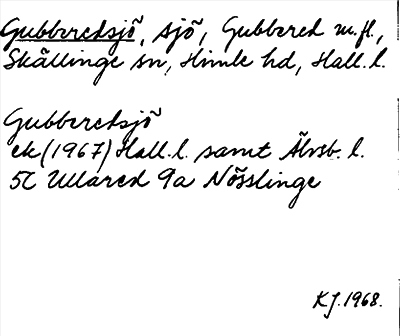 Gubbaredsjö, sjö, Gubbared m.fl.,
Skällinge sn, Himle hd, Hall. l.
Gubbaredsjö
ek (1967) Hall. l. samt Älvsb. l.
5C Ullared 9a Nösslinge
KJ. 1968.